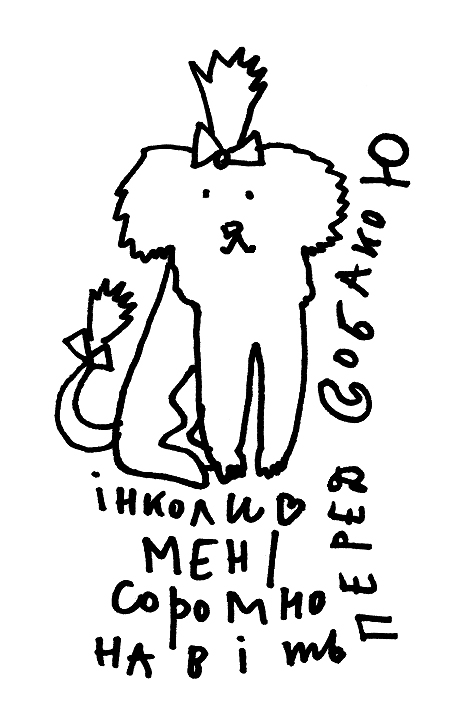 інколи
МЕНІ
СОРОМНО
НАВІТЬ
ПЕРЕД СОБАКОЮ